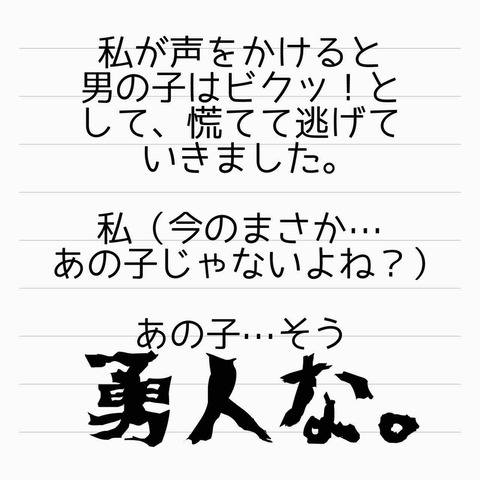 私が声をかけると
男の子はビクッ！と
して、慌てて逃げて
いきました。
私（今のまさか…
あの子じゃないよね？）
あの子…そう
勇人な。